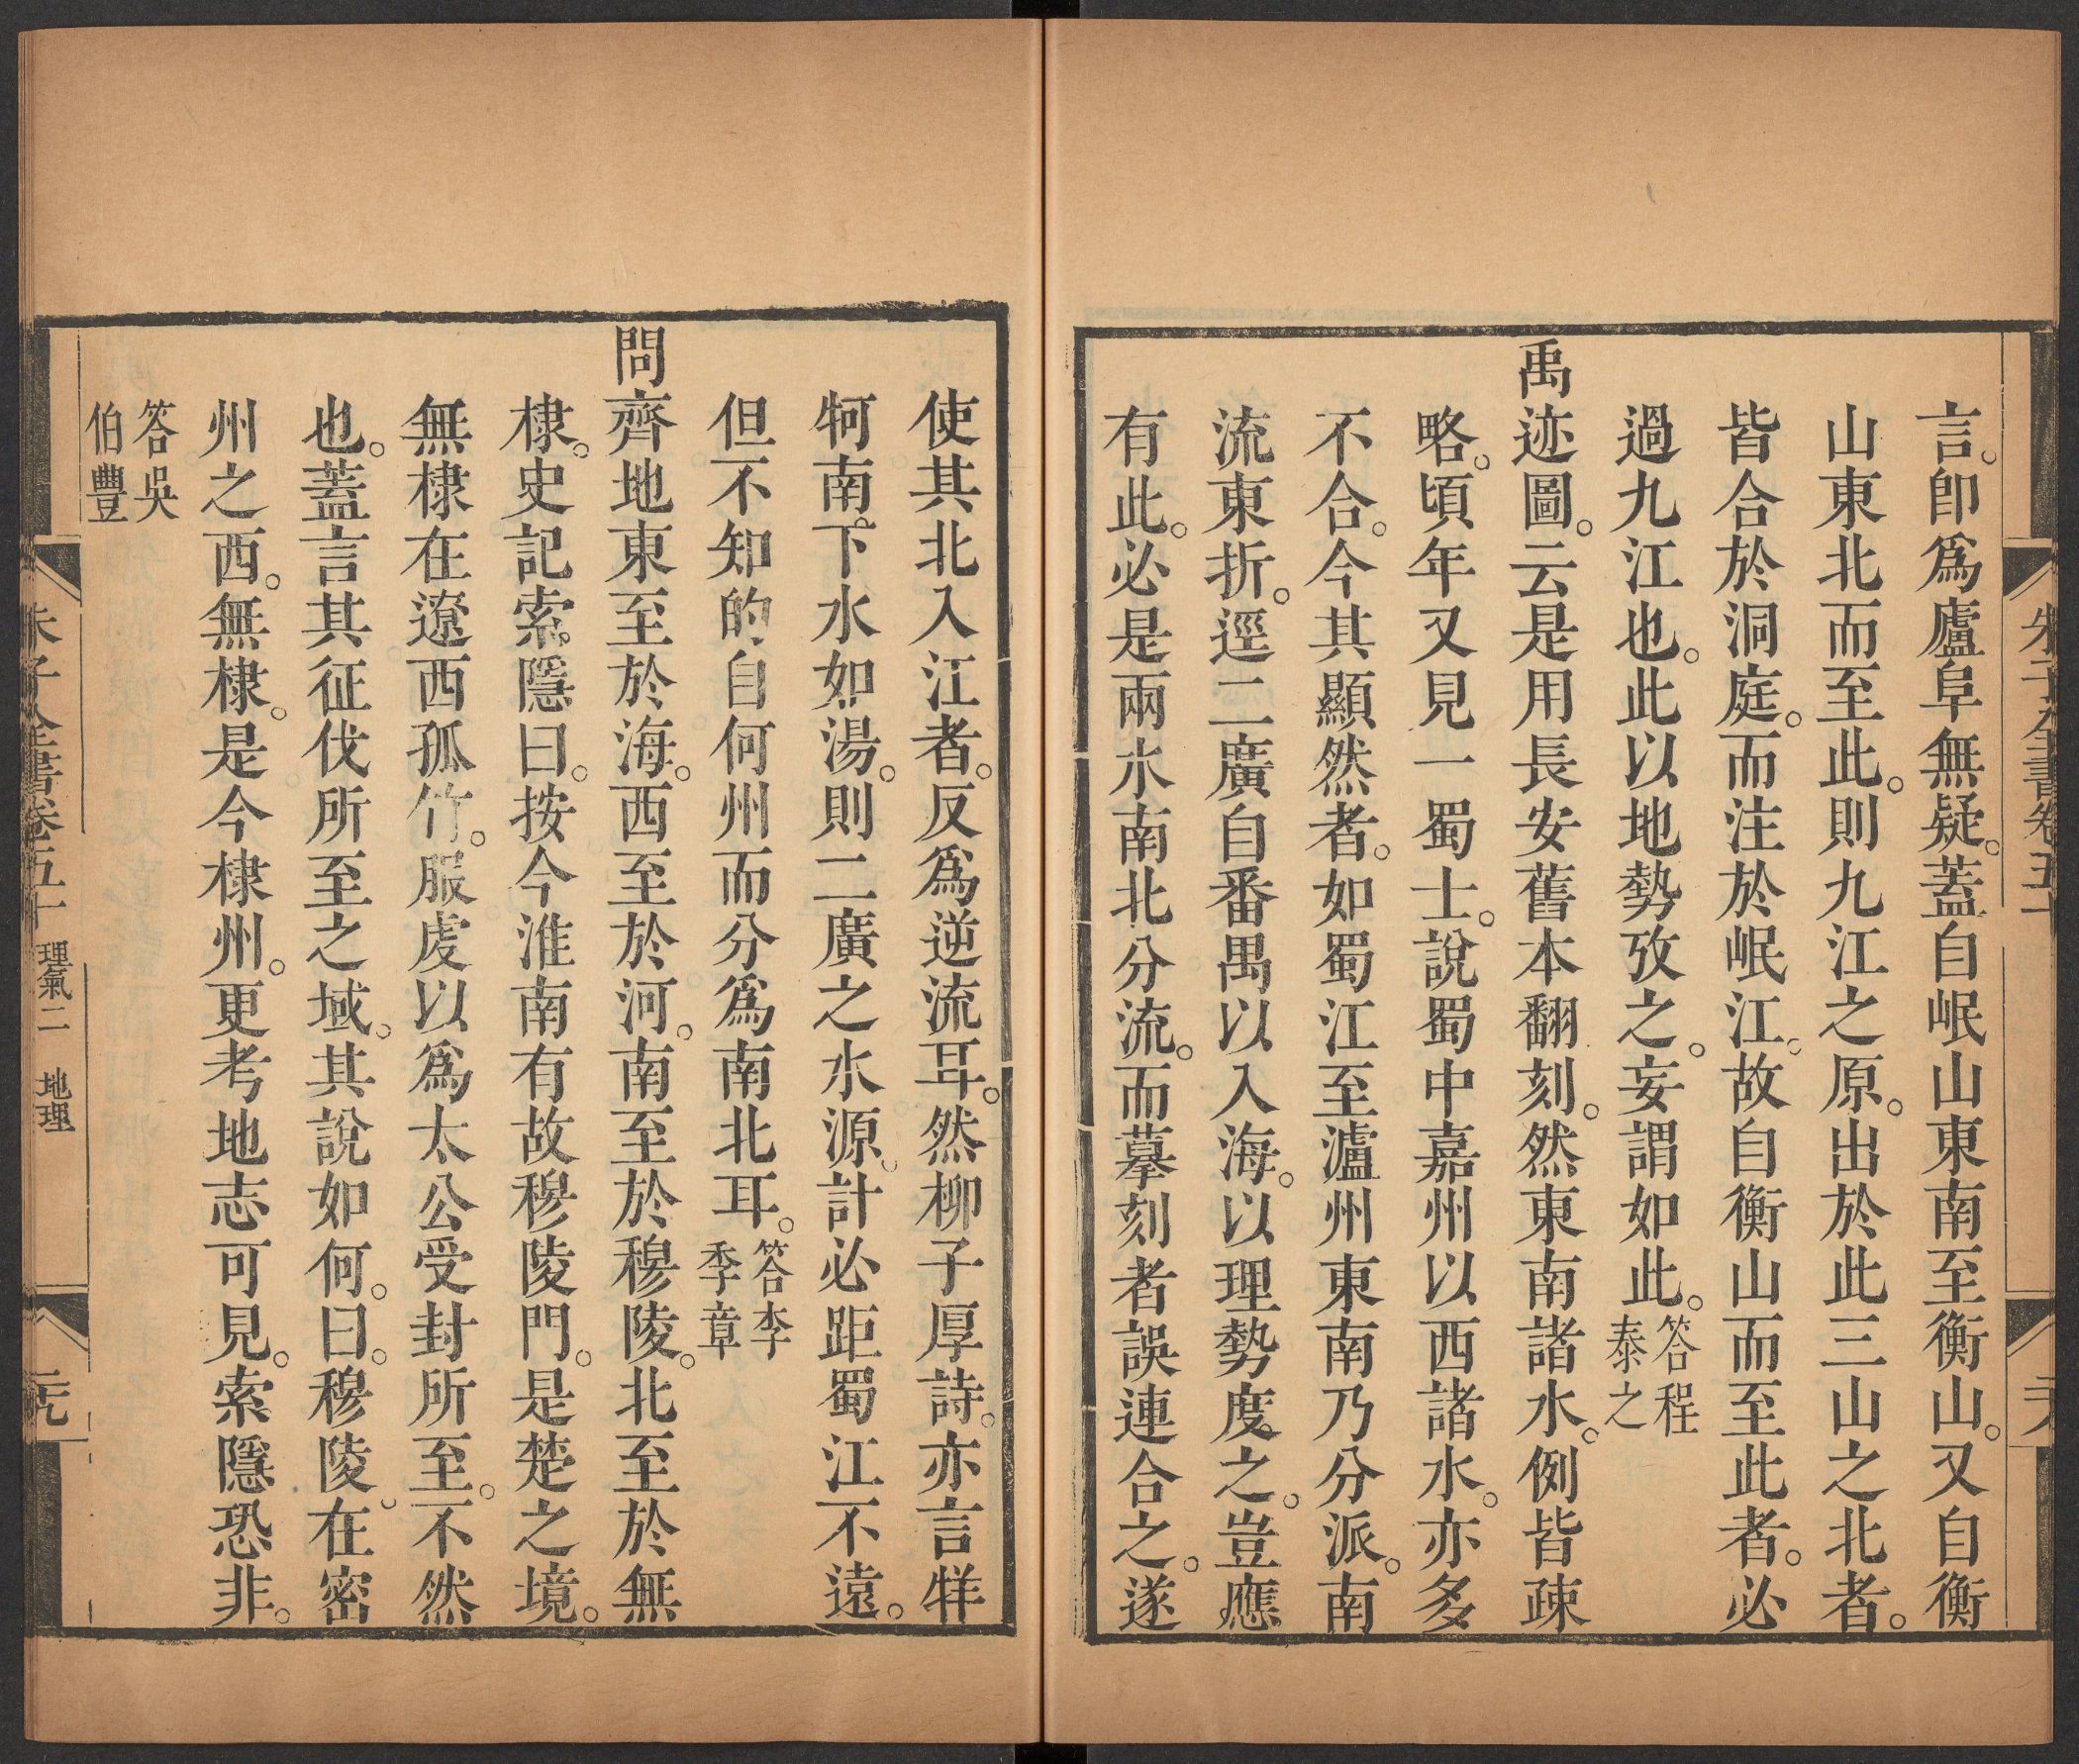 朱子全書卷五十
言。卽爲廬阜無疑。蓋自岷山東南至衡山。又自衡
山東北而至此。則九江之原。出於此三山之北者。
皆合於洞庭。而注於岷江。故自衡山而至此者。必
過九江也。此以地勢攷之。妄謂如此。答程泰之
禹迹圖。云是用長安舊本翻刻。然東南諸水。例皆疎
略。頃年又見一蜀士。說蜀中嘉州以西諸水。亦多
不合。今其顯然者。如蜀江至瀘州東南乃分派。南
流東折。逕二廣自番禺以入海。以理勢度之。豈應
有此。必是兩水南北分流。而摹刻者誤連合之。遂
使其北入江者。反爲逆流耳。然柳子厚詩。亦言牂
牁南。下水如湯。則二廣之水源。計必距蜀江不遠。
但不知的自何州而分爲南北耳。答李季章
問齊地東至於海。西至於河。南至於穆陵。北至於無
棣。史記索。隱曰。按今淮南有故穆陵門。是楚之境。
無棣在遼西孤竹。服虔以爲太公受封所至。不然
也。蓋言其征伐所至之域。其說如何。曰。穆陵。在密
州之西。無棣。是今棣州。更考地志可見。索隱恐非。
答吳伯豐
朱子全書卷五十 理氣二 地理